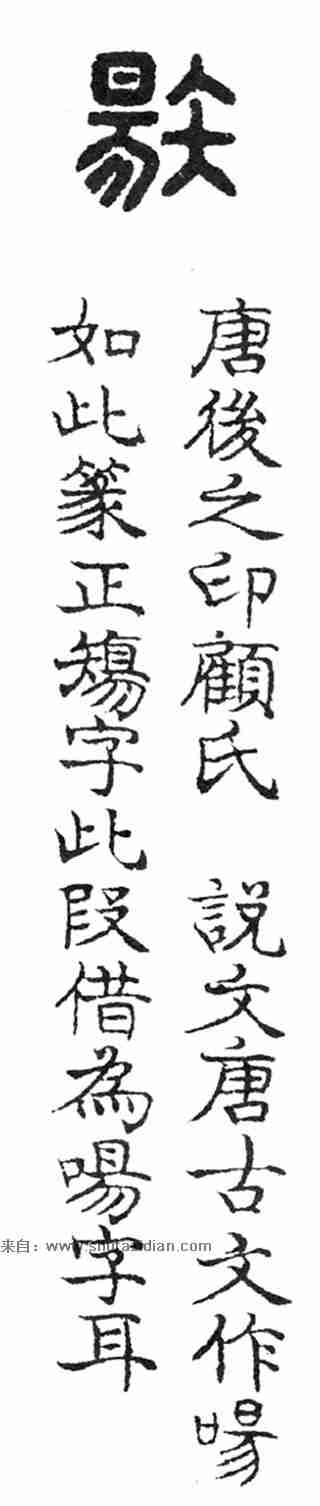 唐後之印顧氏　說文唐古文作啺
如此篆正字此叚借為啺字耳
来自：www.shufazidian.com